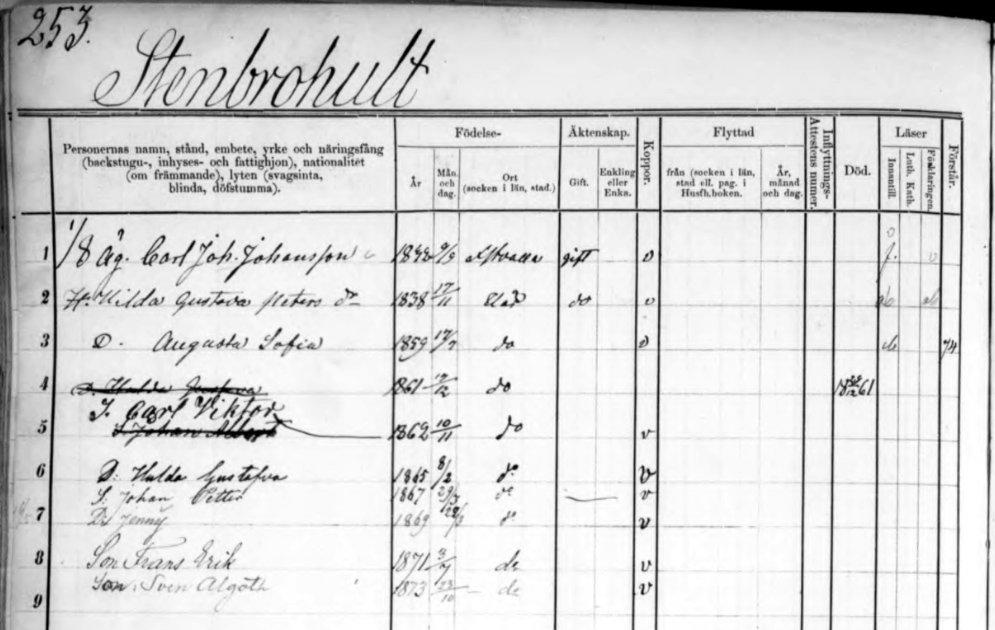 253.
Stenbrohult
Personernas namn, stånd, embete, yrke och näringsfång (backstugu-, inhyses- och fattighjon), nationalitet (om främmande), lyten (svagsinta, blinda, döfstumma).
Födelse-
År
Mån. och dag.
Ort (socken i län, stad.)
Äktenskap.
Gift.
Enkling eller Enka.
Koppor.
Flyttad
från (socken i län, stad ell. pag. i Husfh.boken.
År, månad och dag.
Inflyttnings-Attestens numer.
Död.
Läser
Innantill.
Luth. Kath.
Förklaringen.
Förstår.
1 1/8 Äg. Carl Joh. Johansson 9/9 gift v f. v
2 H. Hilda Gustava Peters dr 1838 17/11 do v
3 D. Augusta Sofia 1859 17/7 do v 74
4 D. Hulda Gustava 1861 12 do 61
S. Carl Viktor
5 S. Johan Albert 1862 10/11 do v
6 D: Hulda Gustafva 1865 8/2 do v
S: Johan Petter 1867 29/3 do v
7 D: Jenny 1869 do v
8 Son Frans Erik 1871 3/7 do v
Son. Sven Algoth 1873 23/10 do v
9